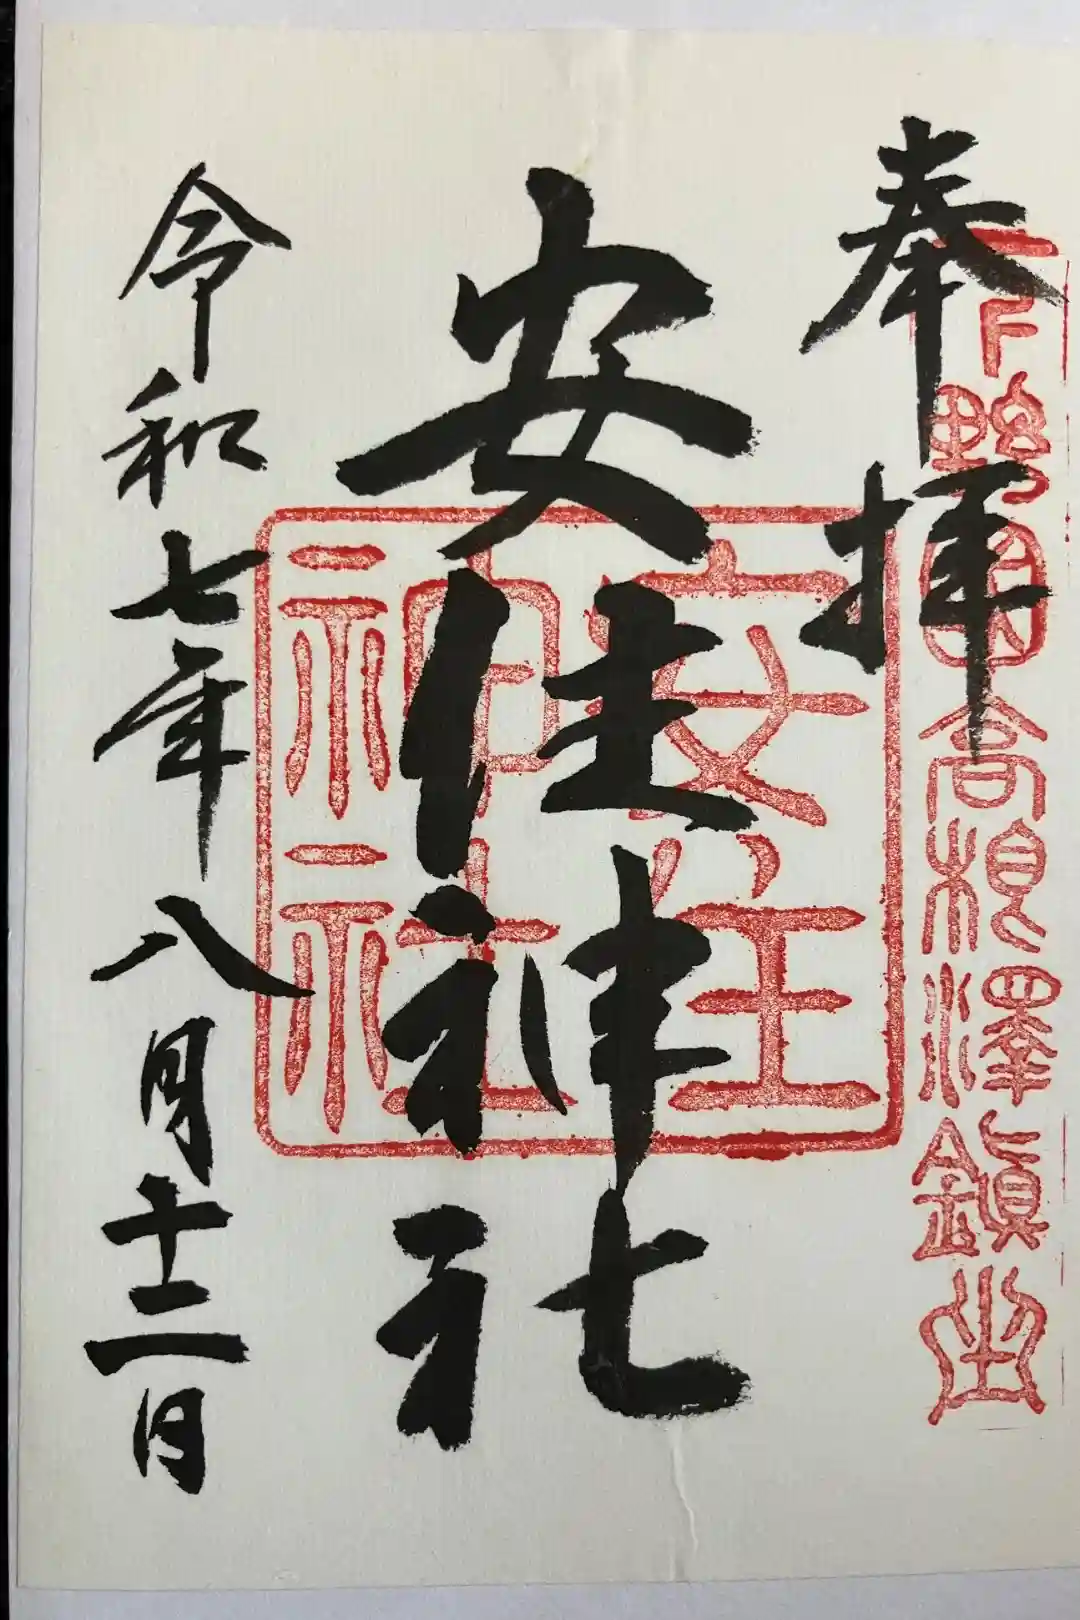 奉拝
下野國高根澤鎮坐
安住神社
安住
神社
令和七年八月十二日